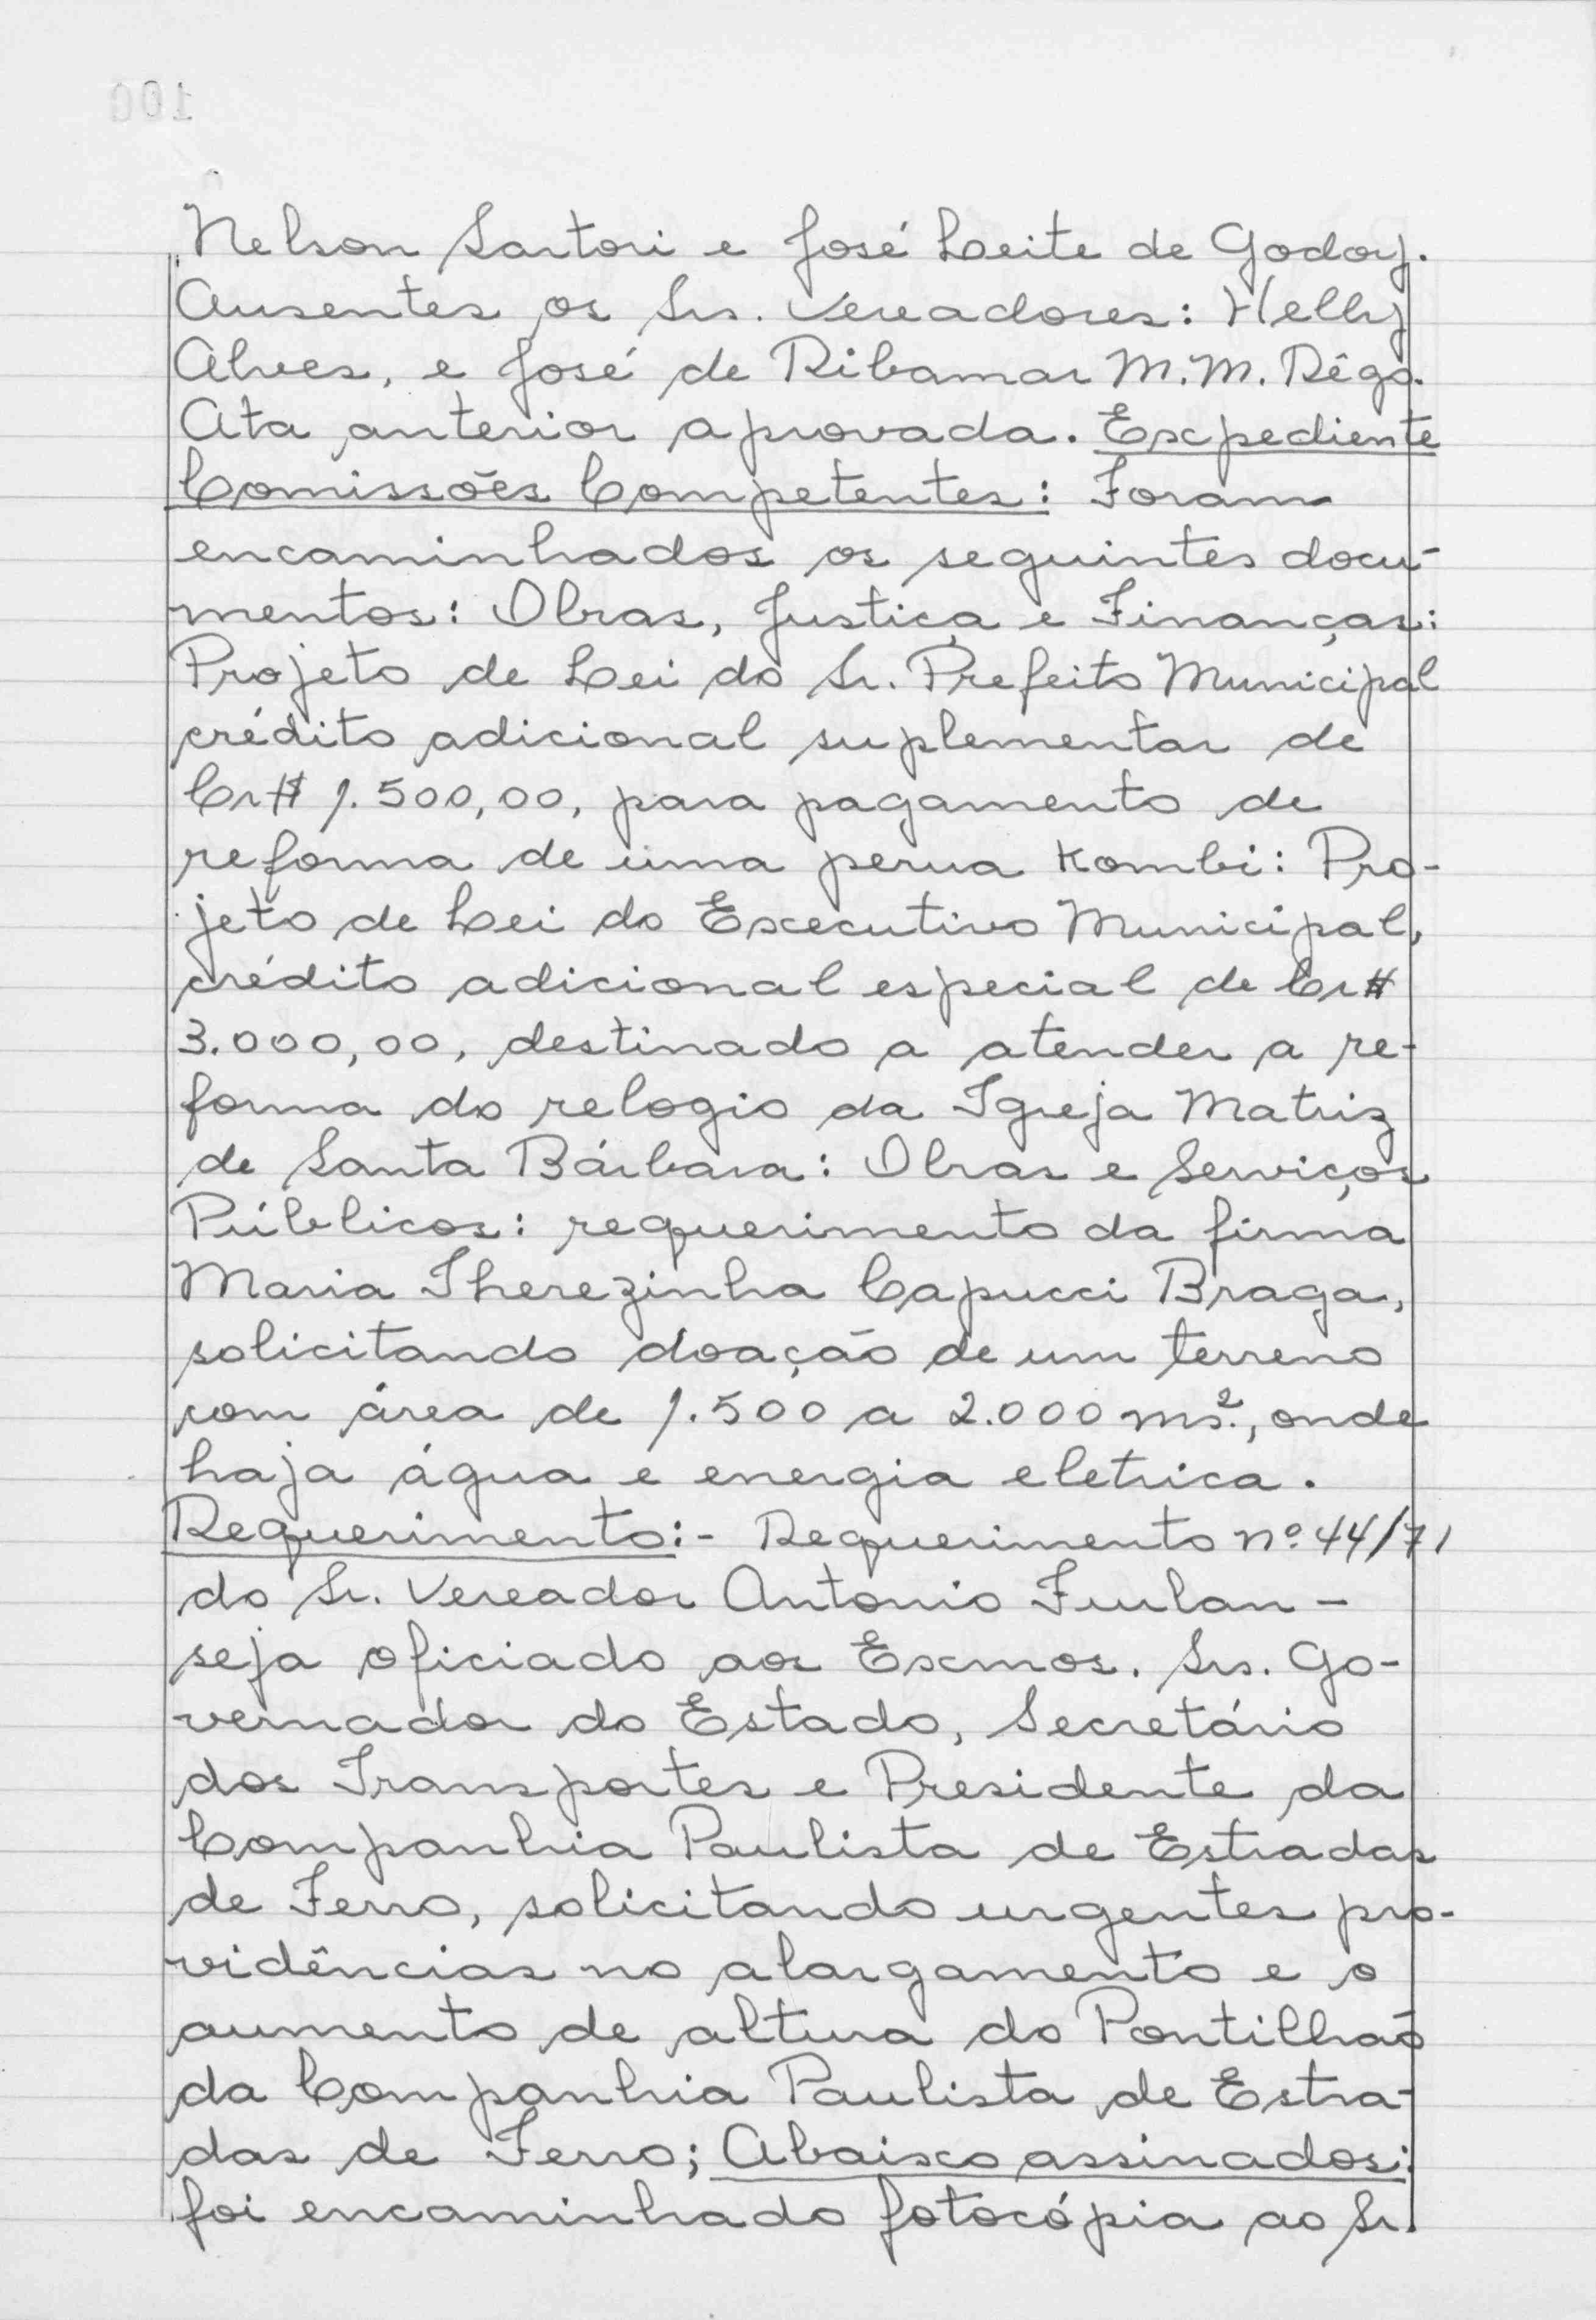 Nelson Sartori e José Leite de Godoy.
Ausentes os Srs. Vereadores: Helly
Alves, e José de Ribamar M.M. Rêgo.
Ata anterior aprovada. Expediente
Comissões Competentes: Foram
encaminhados os seguintes docu-
mentos: Obras, Justiça e Finanças:
Projeto de Lei do Sr. Prefeito Municipal
crédito adicional suplementar de
Cr$ 1.500,00, para pagamento de
reforma de uma perua Kombi: Pro-
jeto de Lei do Executivo Municipal,
crédito adicional especial de Cr$
3.000,00, destinado a atender a re-
forma do relogio da Igreja Matriz
de Santa Bárbara: Obras e Serviços
Públicos: requerimento da firma
Maria Therezinha Capucci Braga,
solicitando doação de um terreno
com área de 1.500 a 2.000 ms²., onde
haja água e energia eletrica.
Requerimento:- Requerimento nº 44/71
do Sr. Vereador Antonio Furlan -
seja oficiado aos Exmos. Srs. Go-
vernador do Estado, Secretário
dos Transportes e Presidente da
Companhia Paulista de Estradas
de Ferro, solicitando urgentes pro-
vidências no alargamento e o
aumento de altura do Pontilhão
da Companhia Paulista de Estra-
das de Ferro; Abaixo assinados:
foi encaminhado fotocópia ao Sr.